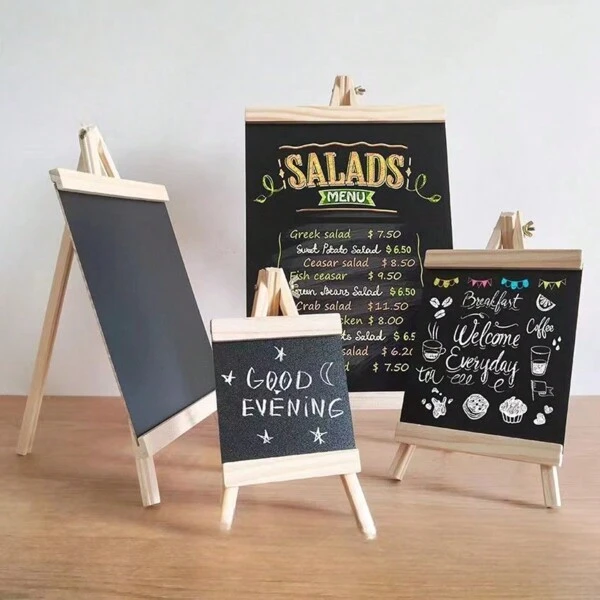 SALADS
MENU
Greek salad $7.50
Sweet Potato Salad $6.50
Ceasar salad $8.50
Fish ceasar $9.50
Beans Salad $6.50
Crab salad $11.50
$8.00
Salad $6.5
salad $6.20
$7.50
GOOD
EVENING
Breakfast
Welcome
Coffee
Everyday
tea